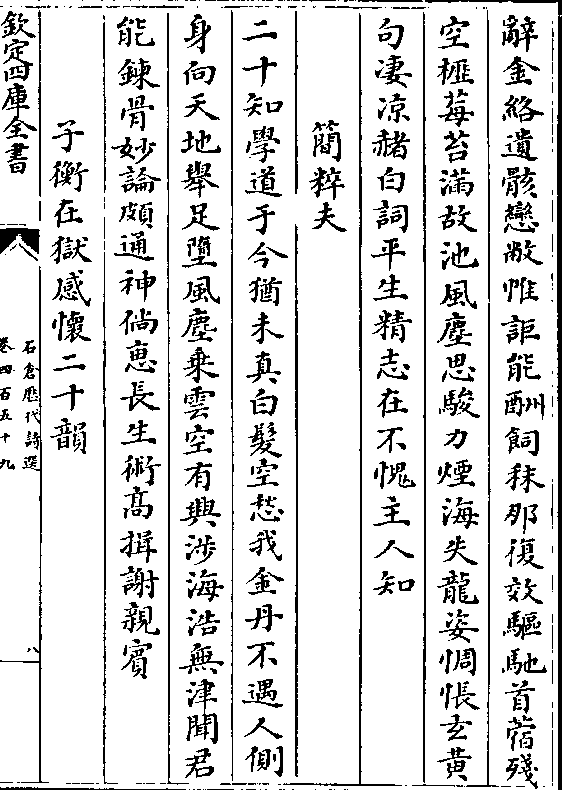 辭金絡遺骸戀敝帷詎能酬飼秣那復效驅馳首蓿殘
空櫪莓苔滿故池風塵思駿力煙海失龍姿惆悵玄黄
句凄凉赭白詞平生精志在不愧主人知
簡粹夫
二十知學道于今猶未真白髮空愁我金丹不遇人側
身向天地舉足墮風塵乗雲空有興涉海浩無津聞君
能鍊骨妙論頗通神倘恵長生術髙揖謝親賓
子衡在獄感懷二十韻
欽定四庫全書
石倉歴代詩選
卷四百五十九
八